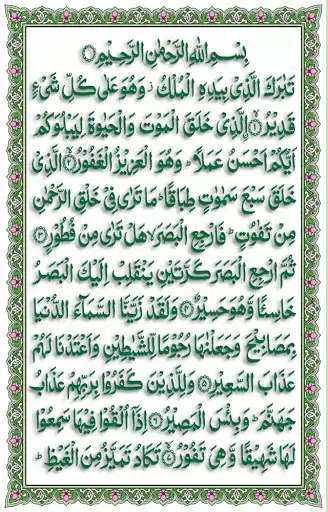 بِسْمِ اللّٰهِ الرَّحْمٰنِ الرَّحِيْمِ
تَبٰرَكَ الَّذِيْ بِيَدِهِ الْمُلْكُ ز وَهُوَ عَلٰى كُلِّ شَيْءٍ
قَدِيْرٌ ۝۱ اِلَّذِيْ خَلَقَ الْمَوْتَ وَالْحَيٰوةَ لِيَبْلُوَكُمْ
اَيُّكُمْ اَحْسَنُ عَمَلًا ؕ وَهُوَ الْعَزِيْزُ الْغَفُوْرُ ۝۲ الَّذِيْ
خَلَقَ سَبْعَ سَمٰوٰتٍ طِبَاقًا ؕ مَا تَرٰى فِيْ خَلْقِ الرَّحْمٰنِ
مِنْ تَفٰوُتٍ ؕ فَارْجِعِ الْبَصَرَ ۙ هَلْ تَرٰى مِنْ فُطُوْرٍ ۝۳
ثُمَّ ارْجِعِ الْبَصَرَ كَرَّتَيْنِ يَنْقَلِبْ اِلَيْكَ الْبَصَرُ
خَاسِئًا وَّهُوَ حَسِيْرٌ ۝۴ وَلَقَدْ زَيَّنَّا السَّمَآءَ الدُّنْيَا
بِمَصَابِيْحَ وَجَعَلْنٰهَا رُجُوْمًا لِّلشَّيٰطِيْنِ وَاَعْتَدْنَا لَهُمْ
عَذَابَ السَّعِيْرِ ۝۵ وَلِلَّذِيْنَ كَفَرُوْا بِرَبِّهِمْ عَذَابُ
جَهَنَّمَ ؕ وَبِئْسَ الْمَصِيْرُ ۝۶ اِذَآ اُلْقُوْا فِيْهَا سَمِعُوْا
لَهَا شَهِيْقًا وَّهِيَ تَفُوْرُ ۝۷ تَكَادُ تَمَيَّزُ مِنَ الْغَيْظِ ؕ